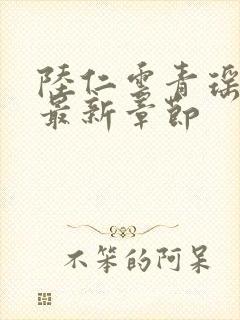 陸仁雲青瑶
最新章節
不笨的阿呆